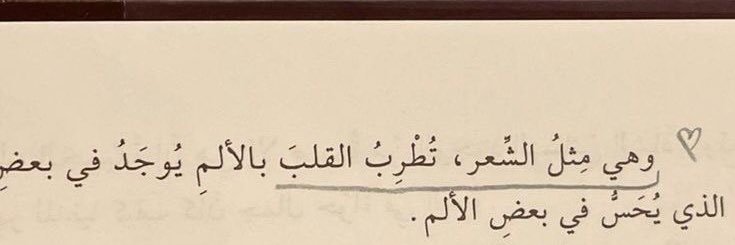 وهي مِثلُ الشِّعر، تُطْرِبُ القلبَ بالألمِ يُوجَدُ في بعضِ
الذي يُحَسُّ في بعضِ الألم.